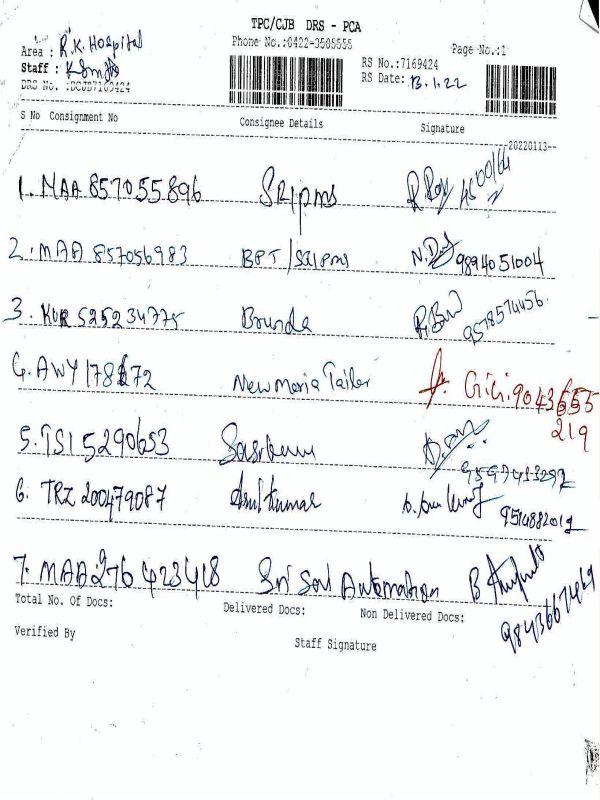 TPC/CJB DRS - PCA
Phone No.:0422-3505555 Page No.:1
Area : R.K. Hospital
Staff :
RS No.:7169424
RS Date: 13.1.22
DRS No. :DCJB7169424
S No Consignment No Consignee Details Signature
20220113--
1. MAA 857055896 SRIpms
2. MAA 857056983 BPT/SRIpms 9894051004
3. KUR 525234775 Brunda 9578574456
4. AWY 178172 New Maria Tailer Gici. 9043655
219
5. TSI 5290653
6. TRZ 200479087 Arul Kumar 951488201
7. MAA 276 423418 Sri Sai Automation B
9843667469
Total No. Of Docs: Delivered Docs: Non Delivered Docs:
Verified By
Staff Signature